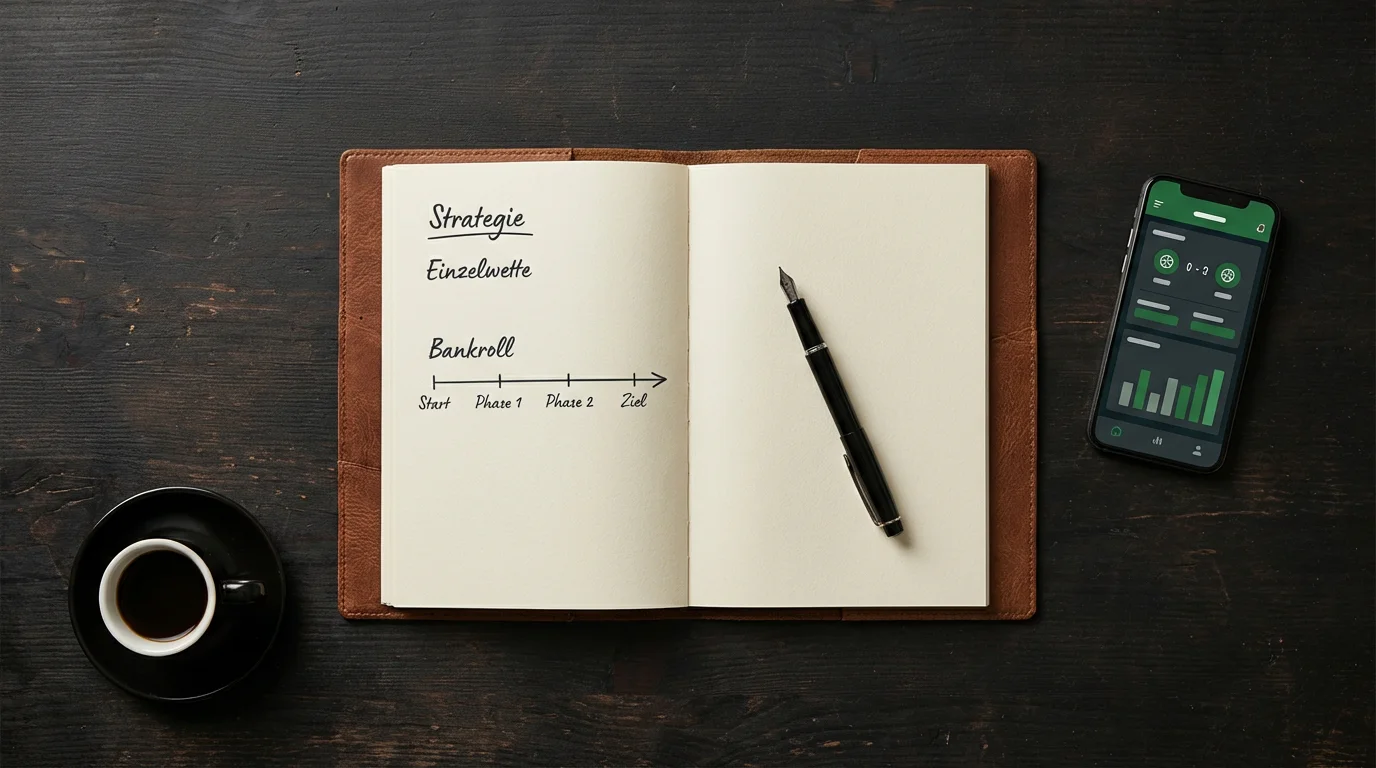 Strategie
Einzelwette
Bankroll
Start Phase 1 Phase 2 Ziel